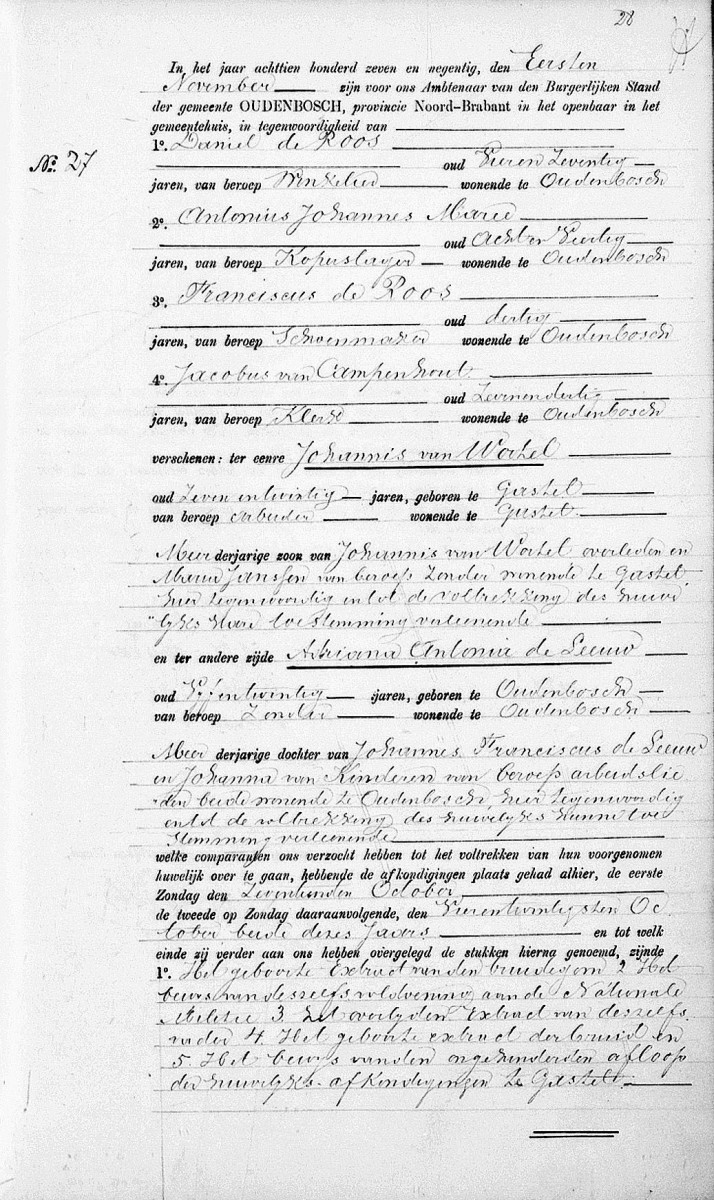 28
In het jaar achttien honderd zeven en negentig, den Eersten
November zijn voor ons Ambtenaar van den Burgerlijken Stand
der gemeente OUDENBOSCH, provincie Noord-Brabant in het openbaar in het
gemeentehuis, in tegenwoordigheid van
No. 27
1o. Daniel de Roos
oud Vieren Zeventig
jaren, van beroep Winkelier wonende te Oudenbosch
2o. Antonius Johannes
oud Acht en Veertig
jaren, van beroep Koperslager wonende te Oudenbosch
3o. Franciscus de Roos
oud dertig
jaren, van beroep Schoenmaker wonende te Oudenbosch
4o. Jacobus van Campenhout
oud Zevenendertig
jaren, van beroep Klerk wonende te Oudenbosch
verschenen: ter eenre Johannis van Wortel
oud Zeven entwintig jaren, geboren te Gastel
van beroep arbeider wonende te Gastel.
Meer derjarige zoon van Johannis van Wortel overleden en
Maria Janssen van beroep Zonder wonende te Gastel
hier tegenwoordig en tot de voltrekking des huwe
"lijks hare toestemming verleenende
en ter andere zijde Adriana Antonia de Leeuw
oud Vijfentwintig jaren, geboren te Oudenbosch
van beroep Zonder wonende te Oudenbosch
Meer derjarige dochter van Johannes Franciscus de Leeuw
en Johanna van Kinderen van beroep arbeidslie
"den beide wonende te Oudenbosch, hier tegenwoordig
en tot de voltrekking des huwelijks hunne toe
stemming verleenende
welke comparanten ons verzocht hebben tot het voltrekken van hun voorgenomen
huwelijk over te gaan, hebbende de afkondigingen plaats gehad alhier, de eerste
Zondag den Zeventienden October
de tweede op Zondag daaraanvolgende, den Vierentwintigsten Oc
tober beide dezes Jaars en tot welk
einde zij verder aan ons hebben overgelegd de stukken hierna genoemd, zijnde
1o. Het geboorte Extract van den bruidegom 2 Het
bewijs van deszelfs voldoening aan de Nationale
Militie 3. het overlijden Extract van deszelfs
vader 4. Het geboorte extract der bruid en
5. Het bewijs van den ongehinderden afloop
der huwelijks-afkondigingen te Gastel.